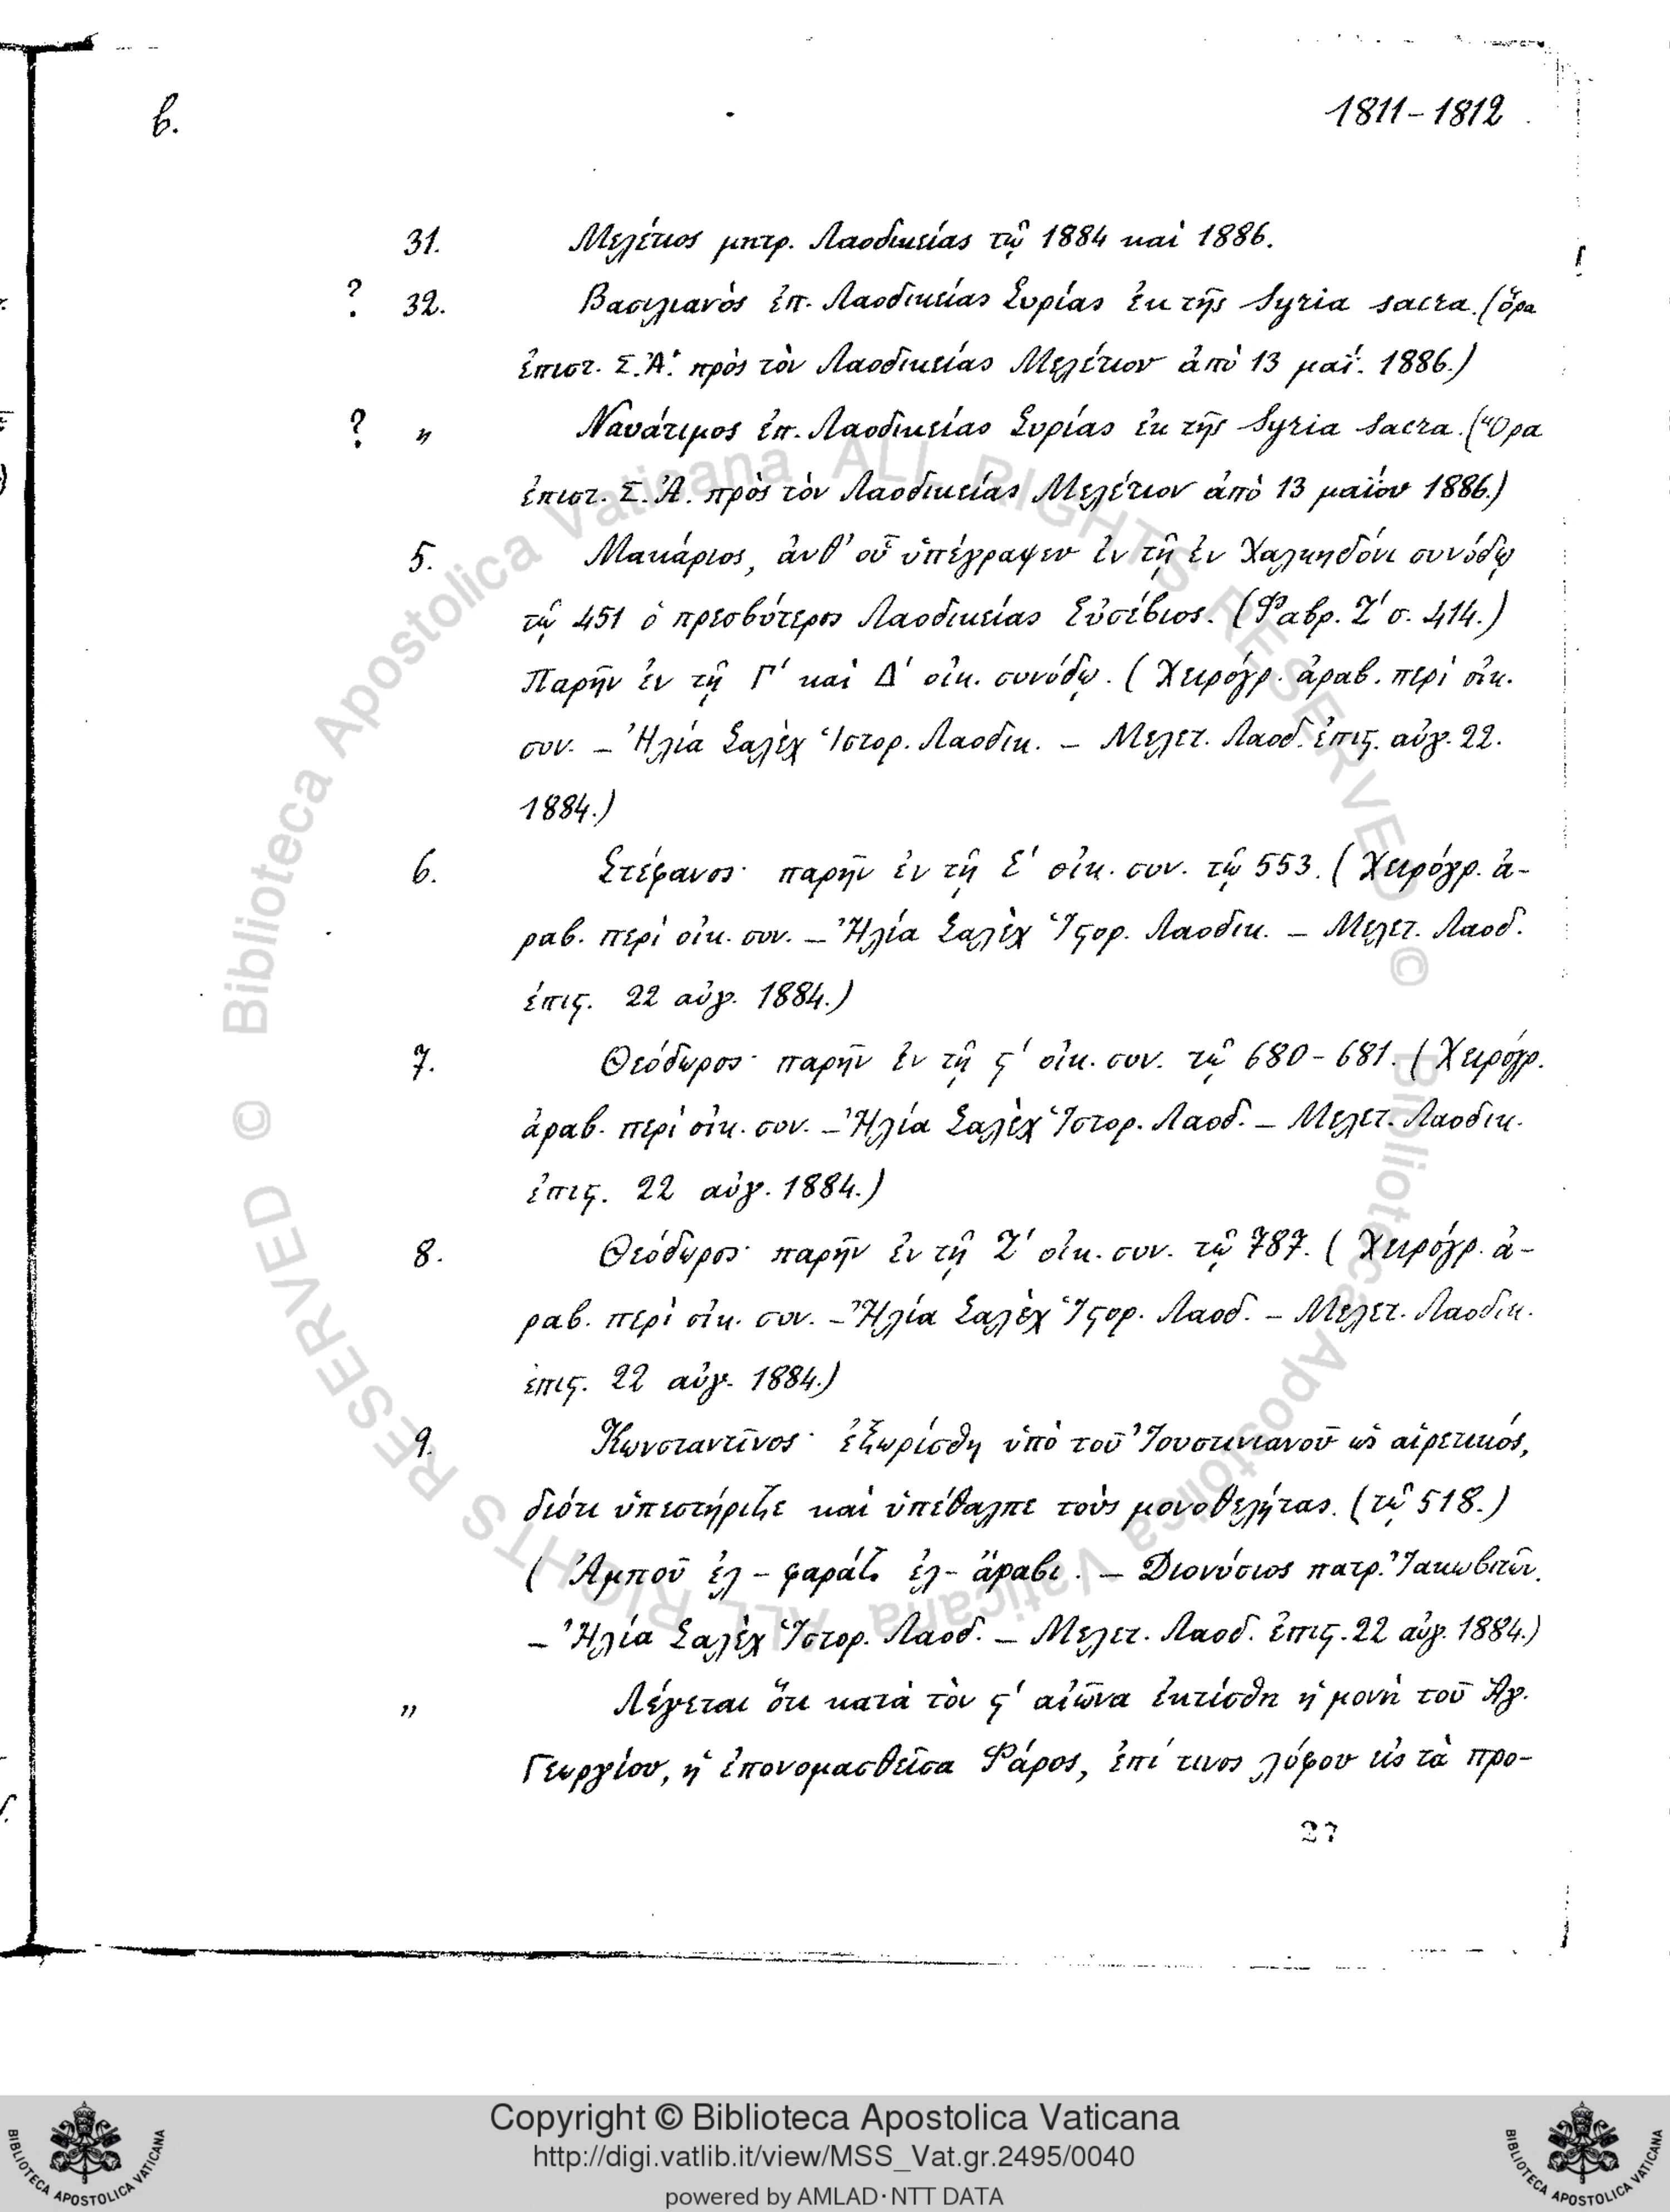 β.
1811-1812
31. Μελέτιος μητρ. Λαοδικείας τῷ 1884 καὶ 1886.
? 32. Βασιλιανὸς ἐπ. Λαοδικείας Συρίας ἐκ τῆς Syria sacra. (ὅρα
ἐπιστ. Σ. Ἀ. πρὸς τὸν Λαοδικείας Μελέτιον ἀπὸ 13 μαΐ. 1886.)
? „ Ναυάτιμος ἐπ. Λαοδικείας Συρίας ἐκ τῆς Syria sacra. (Ὅρα
ἐπιστ. Σ. Ἀ. πρὸς τὸν Λαοδικείας Μελέτιον ἀπὸ 13 μαΐου 1886.)
5. Μακάριος, ἀνθ' οὗ ὑπέγραψεν ἐν τῇ ἐν Χαλκηδόνι συνόδῳ
τῷ 451 ὁ πρεσβύτερος Λαοδικείας Εὐσέβιος. (Φαβρ. Ζ' σ. 414.)
Παρῆν ἐν τῇ Γ' καὶ Δ' οἰκ. συνόδῳ. (Χειρόγρ. ἀραβ. περὶ οἰκ.
συν. – Ἠλία Σαλὲχ Ἱστορ. Λαοδικ. – Μελετ. Λαοδ. ἐπιϛ. αὐγ. 22.
1884.)
6. Στέφανος· παρῆν ἐν τῇ Ε' οἰκ. συν. τῷ 553. (Χειρόγρ. ἀ-
ραβ. περὶ οἰκ. συν. – Ἠλία Σαλὲχ Ἱϛορ. Λαοδικ. – Μελετ. Λαοδ.
ἐπιϛ. 22 αὐγ. 1884.)
7. Θεόδωρος· παρῆν ἐν τῇ ϛ' οἰκ. συν. τῷ 680-681. (Χειρόγρ.
ἀραβ. περὶ οἰκ. συν. – Ἠλία Σαλὲχ Ἱστορ. Λαοδ. – Μελετ. Λαοδικ.
ἐπιϛ. 22 αὐγ. 1884.)
8. Θεόδωρος· παρῆν ἐν τῇ Ζ' οἰκ. συν. τῷ 787. (Χειρόγρ. ἀ-
ραβ. περὶ οἰκ. συν. – Ἠλία Σαλὲχ Ἱϛορ. Λαοδ. – Μελετ. Λαοδικ.
ἐπιϛ. 22 αὐγ. 1884.)
9. Κωνσταντῖνος· ἐξωρίσθη ὑπὸ τοῦ Ἰουστινιανοῦ ὡς αἱρετικός,
διότι ὑπεστήριζε καὶ ὑπέθαλπε τοὺς μονοθελήτας. (τῷ 518.)
(Ἀμποῦ ἐλ-φαράζ ἐλ-ἄραβι. – Διονύσιος πατρ. Ἰακωβιτῶν.
– Ἠλία Σαλὲχ Ἱστορ. Λαοδ. – Μελετ. Λαοδ. ἐπιϛ. 22 αὐγ. 1884.)
„ Λέγεται ὅτι κατὰ τὸν ϛ' αἰῶνα ἐκτίσθη ἡ μονὴ τοῦ Ἁγ.
Γεωργίου, ἡ ἐπονομασθεῖσα Φάρος, ἐπί τινος λόφου εἰς τὰ προ-
27
© Biblioteca Apostolica Vaticana ALL RIGHTS RESERVED © Biblioteca Apostolica Vaticana ALL RIGHTS RESERVED
Copyright © Biblioteca Apostolica Vaticana
http://digi.vatlib.it/view/MSS_Vat.gr.2495/0040
powered by AMLAD·NTT DATA
BIBLIOTECA APOSTOLICA VATICANA
BIBLIOTECA APOSTOLICA VATICANA